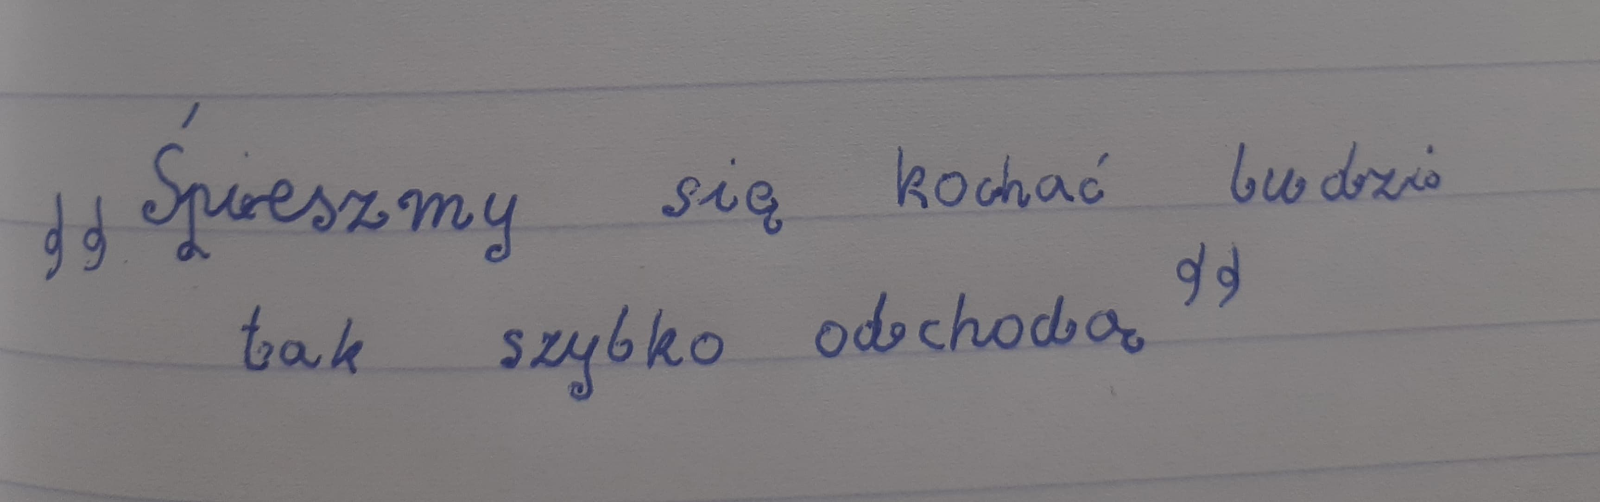 „Śpieszmy się kochać ludzi
tak szybko odchodzą”